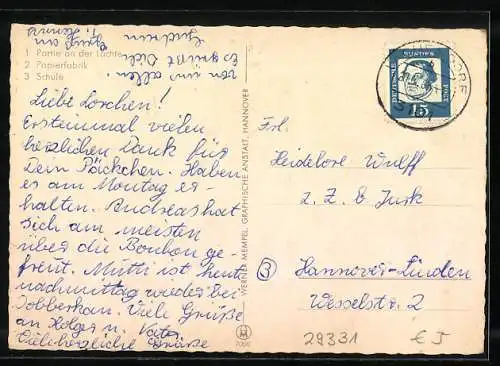 1 Partie an der Lachte
2 Papierfabrik
3 Schule
Liebe Lorchen!
Ersteinmal vielen
herzlichen Dank für
Dein Päckchen. Haben
es am Montag er-
halten. Andreas hat
sich am meisten
über die Bonbon ge-
freut. Mutti ist heute
nachmittag wieder bei
Viele Grüße
an Holger u. Vater
Vielherzliche Grüße
Es grüßt Dich
von uns allen.
WERNER MEMPEL, GRAPHISCHE ANSTALT, HANNOVER
DEUTSCHE
BUNDESPOST
15
Frl.
Heidelore Wulff
z. Z. b Jurk
3 Hannover-Linden
Wesselstr. 2
29331 € 5